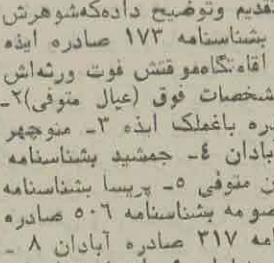 تقدیم وتوضیح داده‌که‌شوهرش
بشناسنامه ۱۷۳ صادره ایذه
اقامتگاه‌موقتش فوت ورثه‌اش
مشخصات فوق (عیال متوفی)۲ـ
ره باغملک ایذه ۳ـ منوچهر
آبادان ٤ـ جمشید بشناسنامه
متوفی ۵ـ پریسا بشناسنامه
سومه بشناسنامه ۵۰٦ صادره
نامه ۳۱۷ صادره آبادان ۸ ـ